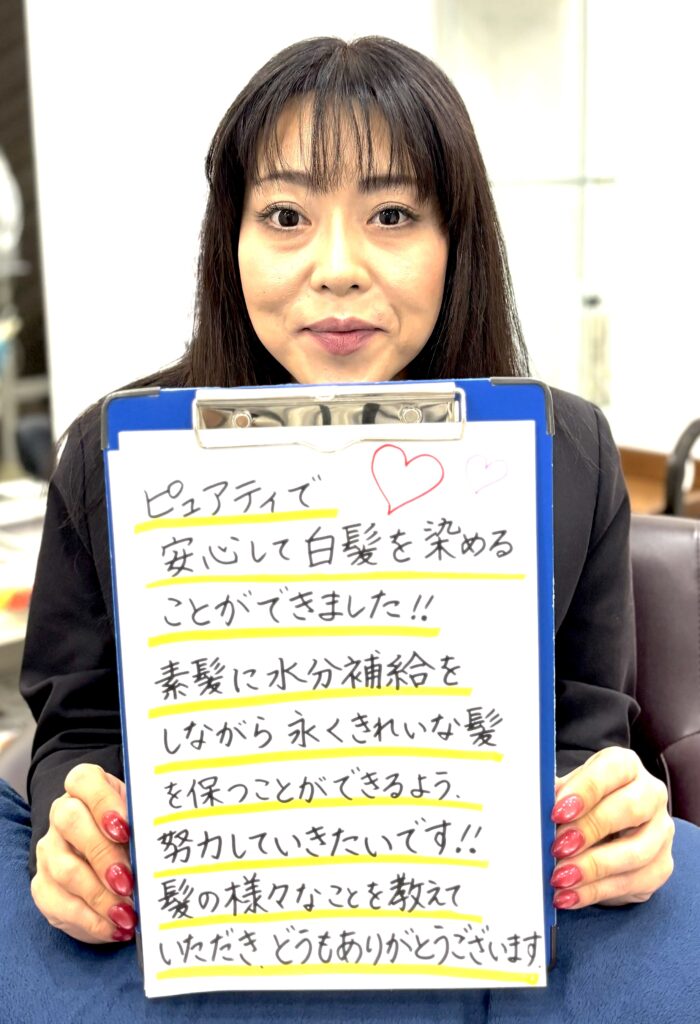 ピュアティで
安心して白髪を染める
ことができました!!
素髪に水分補給を
しながら永くきれいな髪
を保つことができるよう、
努力していきたいです!!
髪の様々なことを教えて
いただき、どうもありがとうございます